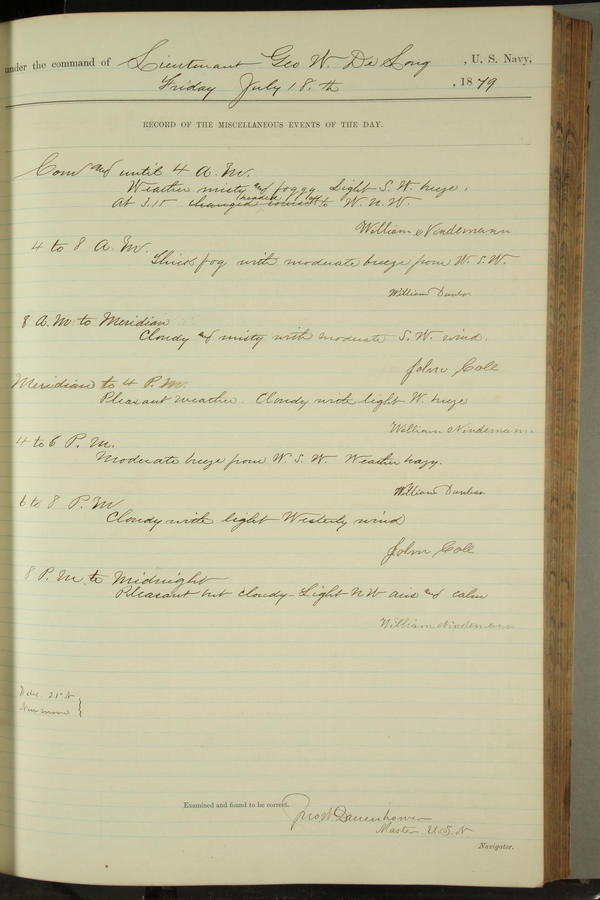 under the command of Lieutenant Geo W. De Long, U. S. Navy,
Friday July 18.th, 1879
RECORD OF THE MISCELLANEOUS EVENTS OF THE DAY.
Com and until 4 A.M.
Weather misty and foggy. Light S. W. breeze.
headed
At 3.15 changed course to W. N. W.
William Nindemann
4 to 8 A. M.
Thick fog with moderate breeze from W. S. W.
William Dunbar
8 A.M. to Meridian
Cloudy and misty with moderate S. W. wind.
John Cole
Meridian to 4 P. M.
Pleasant weather. Cloudy with light W. breeze
William Nindemann.
4 to 6 P. M.
Moderate breeze from W. S. W. Weather hazy.
William Dunbar
6 to 8 P. M
Cloudy with light Westerly wind
John Cole
8 P. M. to Midnight
Pleasant but cloudy - Light NW airs and calm
William Nindemann
D dec. 21° N
New moon }
Examined and found to be correct.
Jno W. Danenhower
Master U.S.N
Navigator.